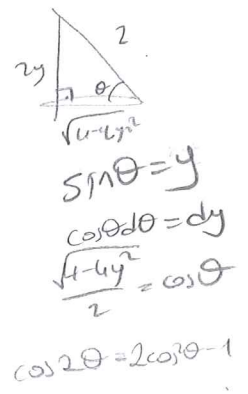 2
2y
θ
√4-4y²
sinθ=y
cosθdθ=dy
√4-4y²/2 = cosθ
cos2θ=2cos²θ-1